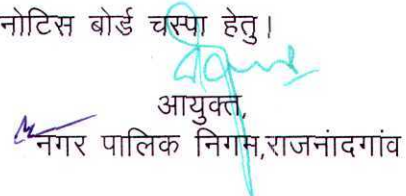 नोटिस बोर्ड चस्पा हेतु।
आयुक्त,
नगर पालिक निगम,राजनांदगांव